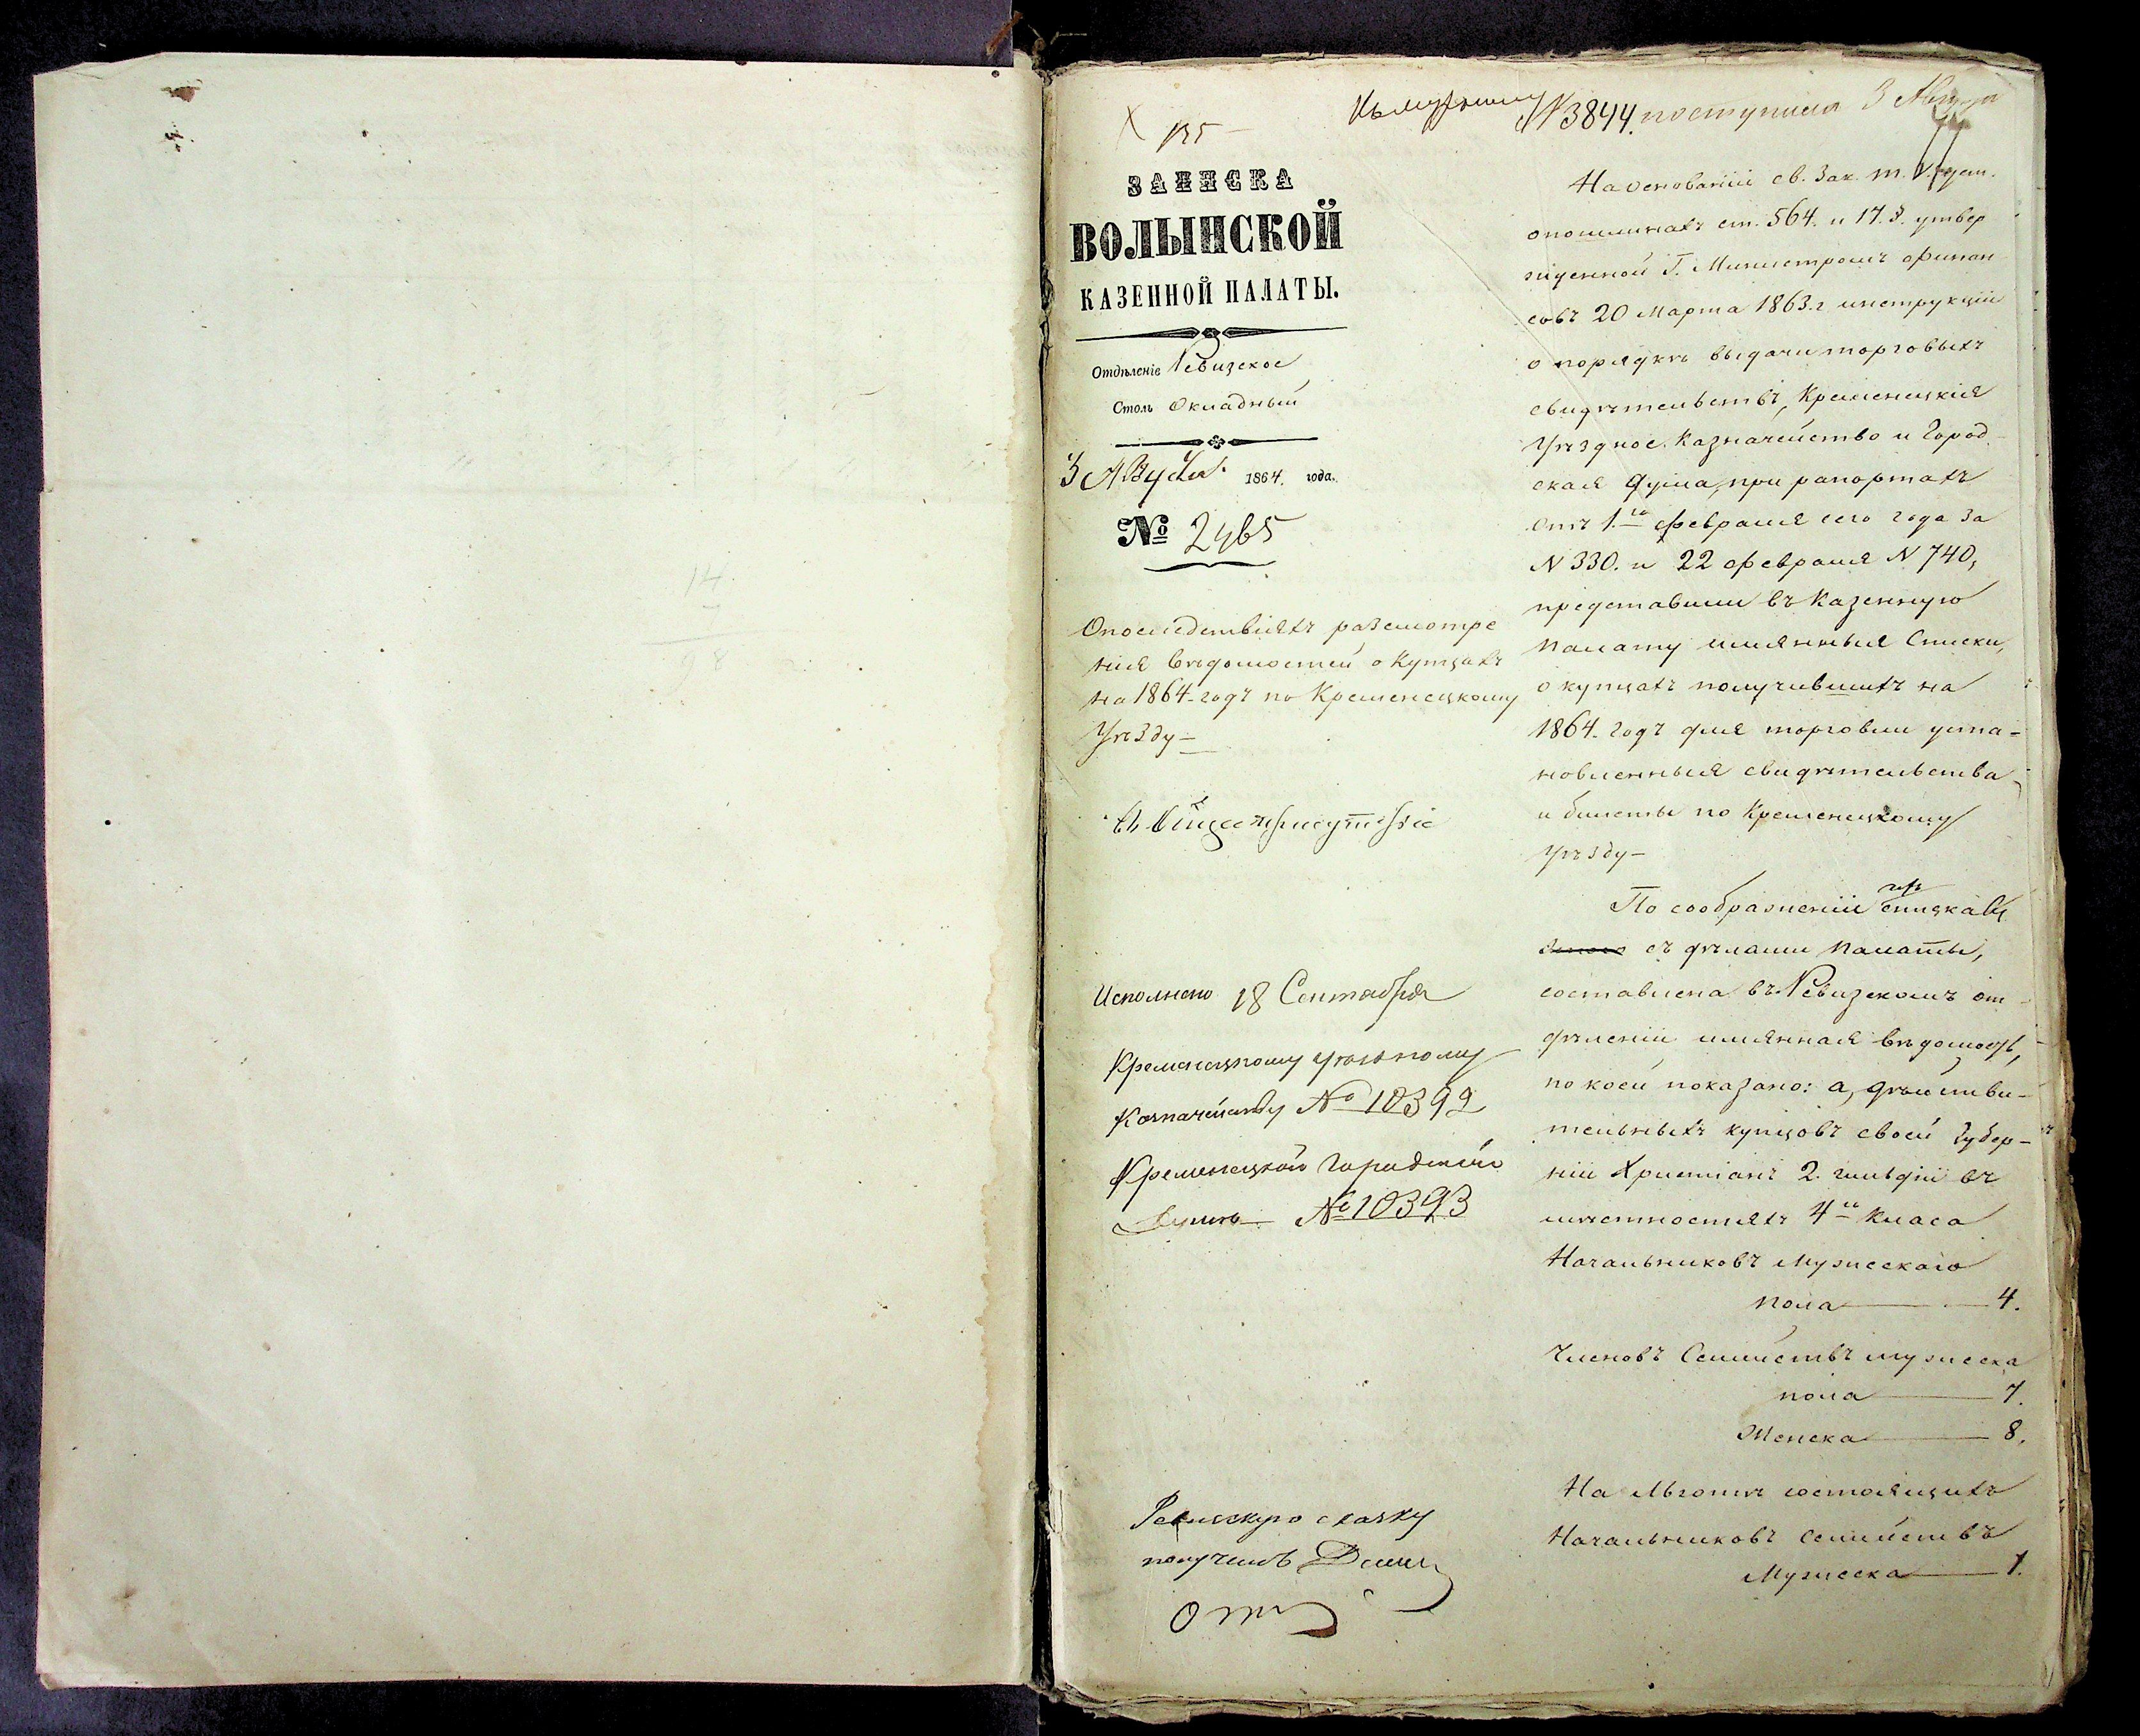 № 3844. поступила 3 Августа
ЗАПИСКА
ВОЛЫНСКОЙ
КАЗЕННОЙ ПАЛАТЫ.
Отдѣленіе Ревизское
Столъ Окладный
3 Августа 1864. года.
№ 2465
О послѣдствіяхъ разсмотре
нія вѣдомостей о купцахъ
на 1864. годъ по Кременецкому
Уѣзду —
Въ Общее присутствіе
Исполнено 18 Сентября
Кременецкому уѣздному
Казначейству № 10392
Кременецкой городской
Думѣ № 10393
Ревизскую сказку
получилъ
На основаніи св. Зак. т. V. уст.
о пошлинахъ ст. 564. и 17. §. утвер
жденной Г. Министромъ финан
совъ 20 Марта 1863. г инструкціи
о порядкѣ выдачи торговыхъ
свидѣтельствъ, Кременецкія
Уѣздное Казначейство и Город
ская Дума, при рапортахъ
отъ 1.го февраля сего года за
N 330. и 22 февраля N 740,
представили въ Казенную
Палату имянныя Списки,
о купцахъ получившихъ на
1864. годъ для торговли уста-
новленныя свидѣтельства
и билеты по Кременецкому
Уѣзду —
По соображеніи списковъ
съ дѣлами Палаты,
составлена въ Ревизскомъ от-
дѣленіи имянная вѣдомость,
по коей показано: а, дѣйстви-
тельныхъ купцовъ своей Губер-
ніи Христіанъ 2. гильдіи въ
мѣстностяхъ 4го класа
Начальниковъ Мужескаго
пола — 4.
Членовъ Семействъ мужеска
пола — 7.
Женска — 8.
На Льготѣ состоящихъ
Начальниковъ Семействъ
Мужеска — 1.